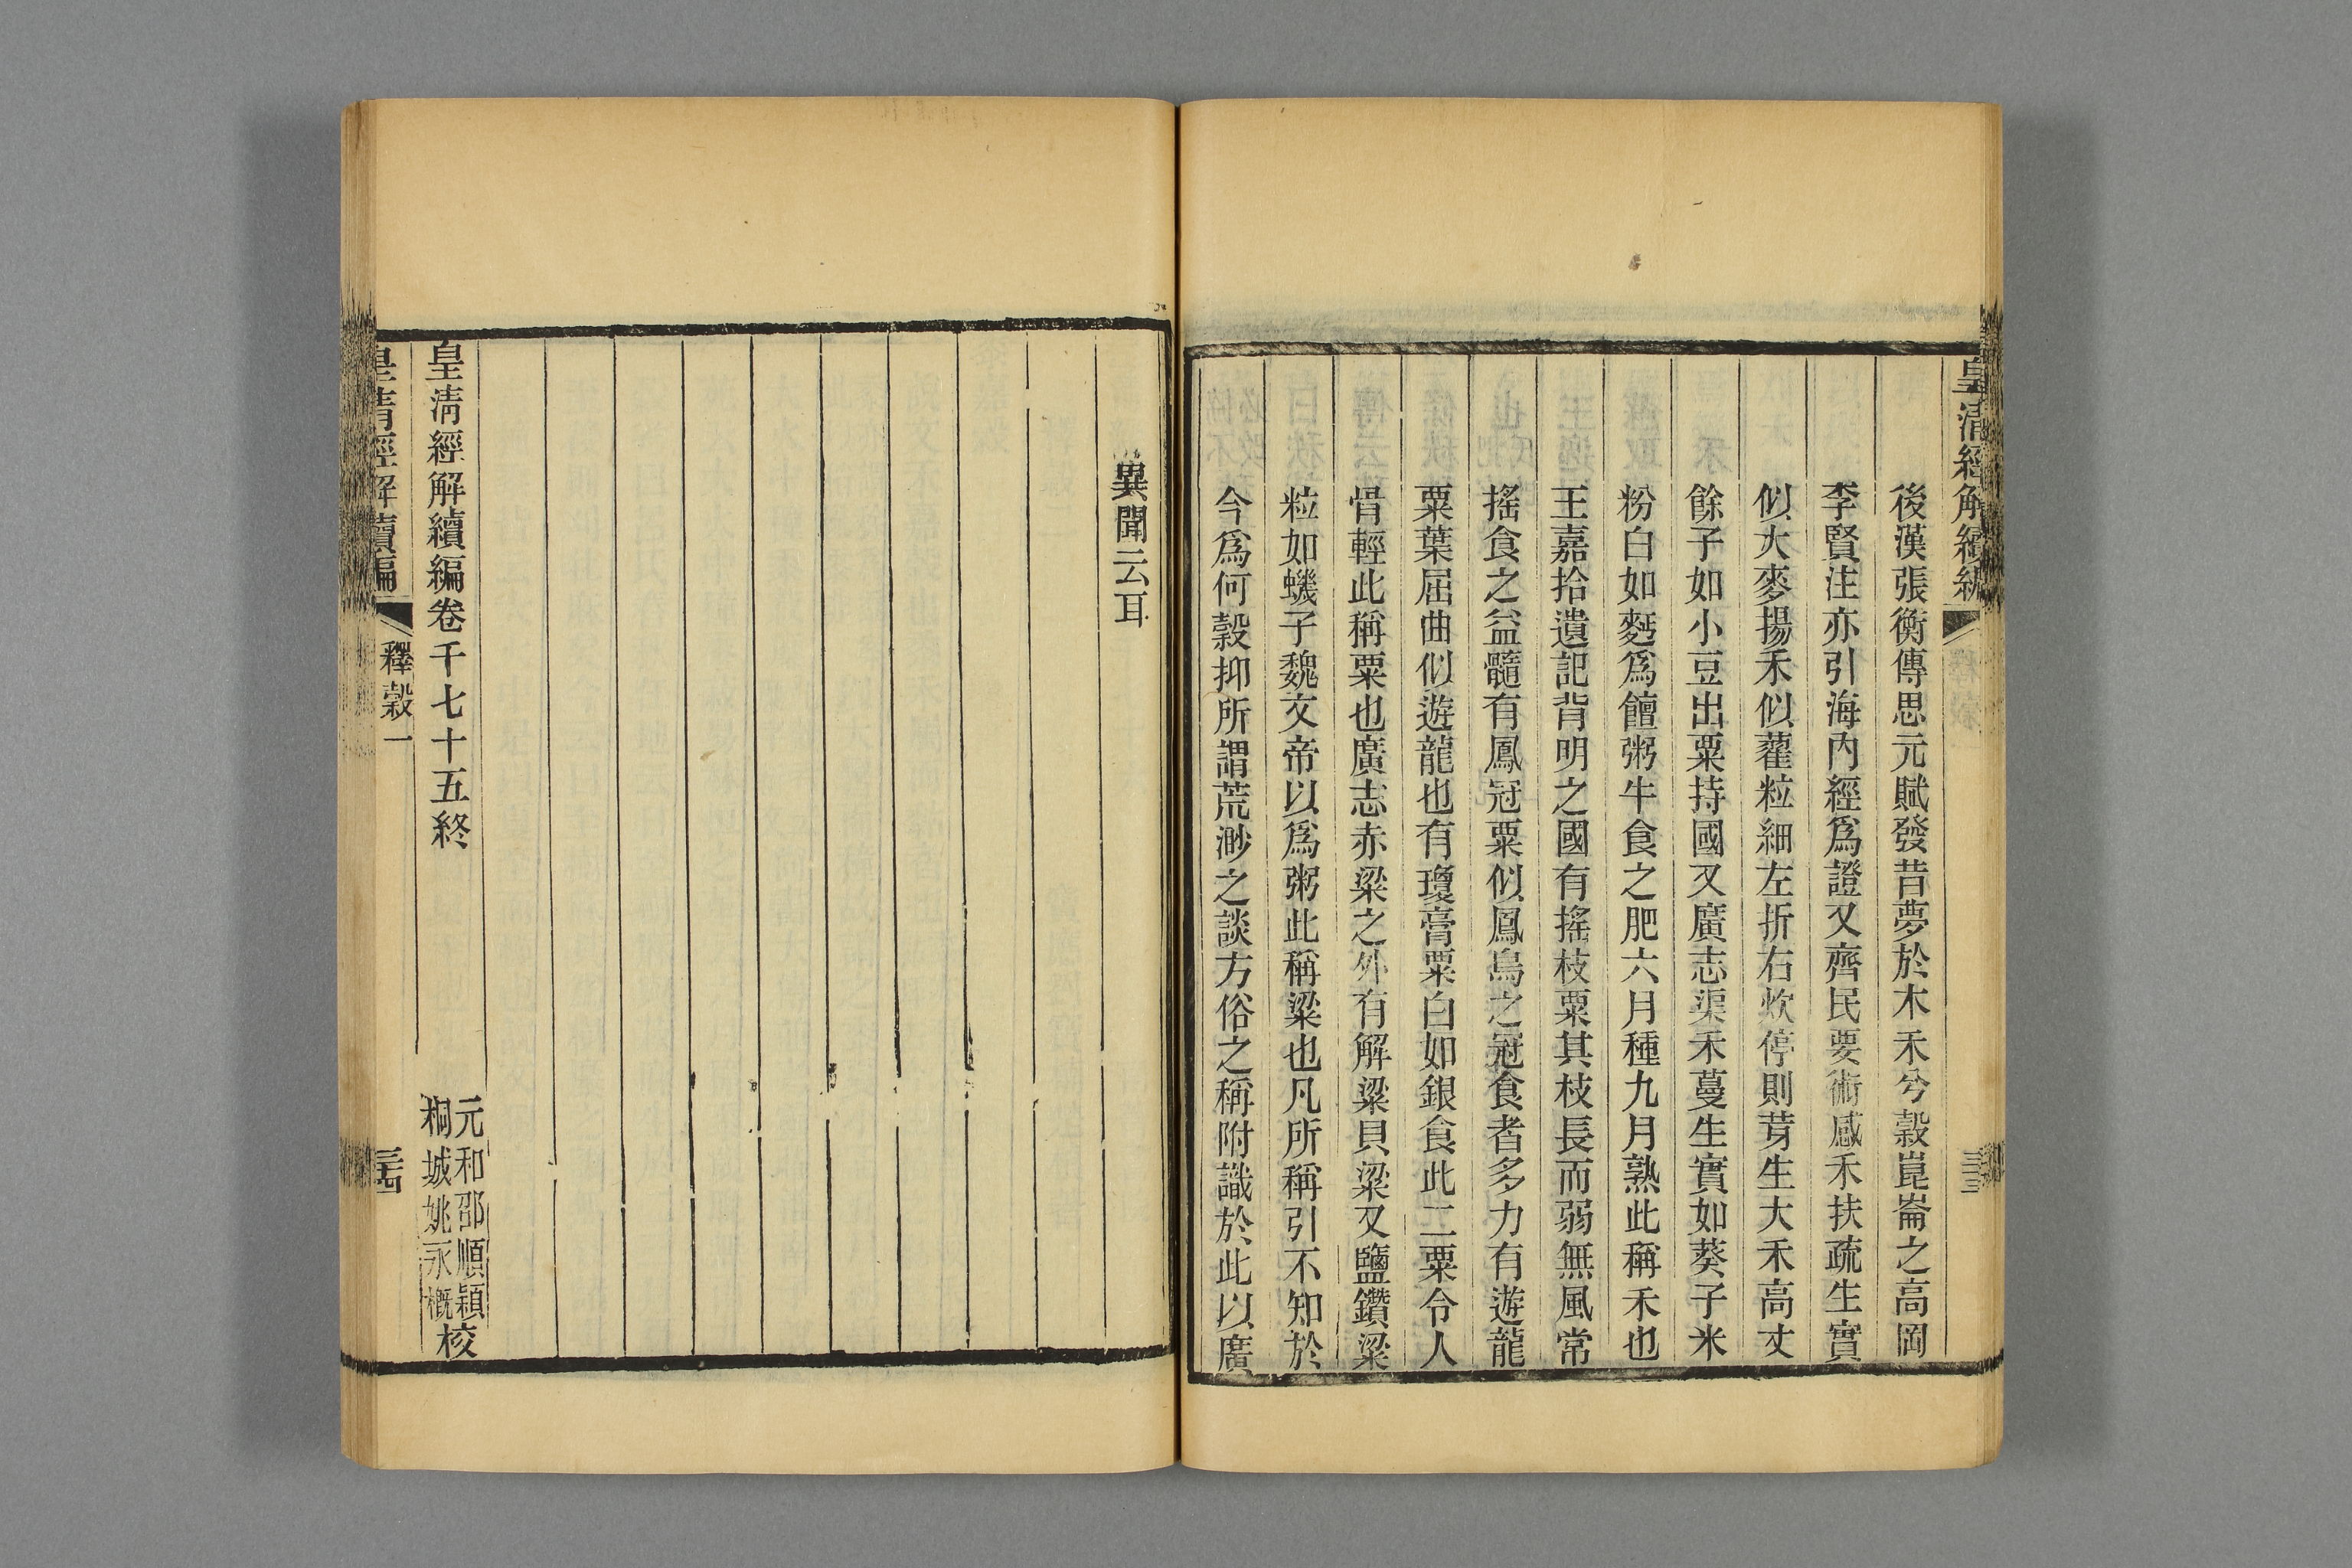 皇清經解續編
三三
後漢張衡傳思元賦發昔夢於木禾兮穀崑崙之高岡
李賢注亦引海內經爲證又齊民要術感禾扶疏生實
似大麥揚禾似藿粒細左折右炊停則芽生大禾高丈
餘子如小豆出粟持國又廣志渠禾蔓生實如葵子米
粉白如麪爲饘粥牛食之肥六月種九月熟此稱禾也
王嘉拾遺記背明之國有搖枝粟其枝長而弱無風常
搖食之益髓有鳳冠粟似鳳鳥之冠食者多力有遊龍
粟葉屈曲似遊龍也有瓊膏粟白如銀食此二粟令人
骨輕此稱粟也廣志赤粱之外有解粱貝粱又鹽鑽粱
粒如蟣子魏文帝以爲粥此稱粱也凡所稱引不知於
今爲何穀抑所謂荒渺之談方俗之稱附識於此以廣
異聞云耳
皇淸經解續編卷千七十五終
元和邵順穎
桐城姚永概
校
皇清經解續編
釋穀一
三十四